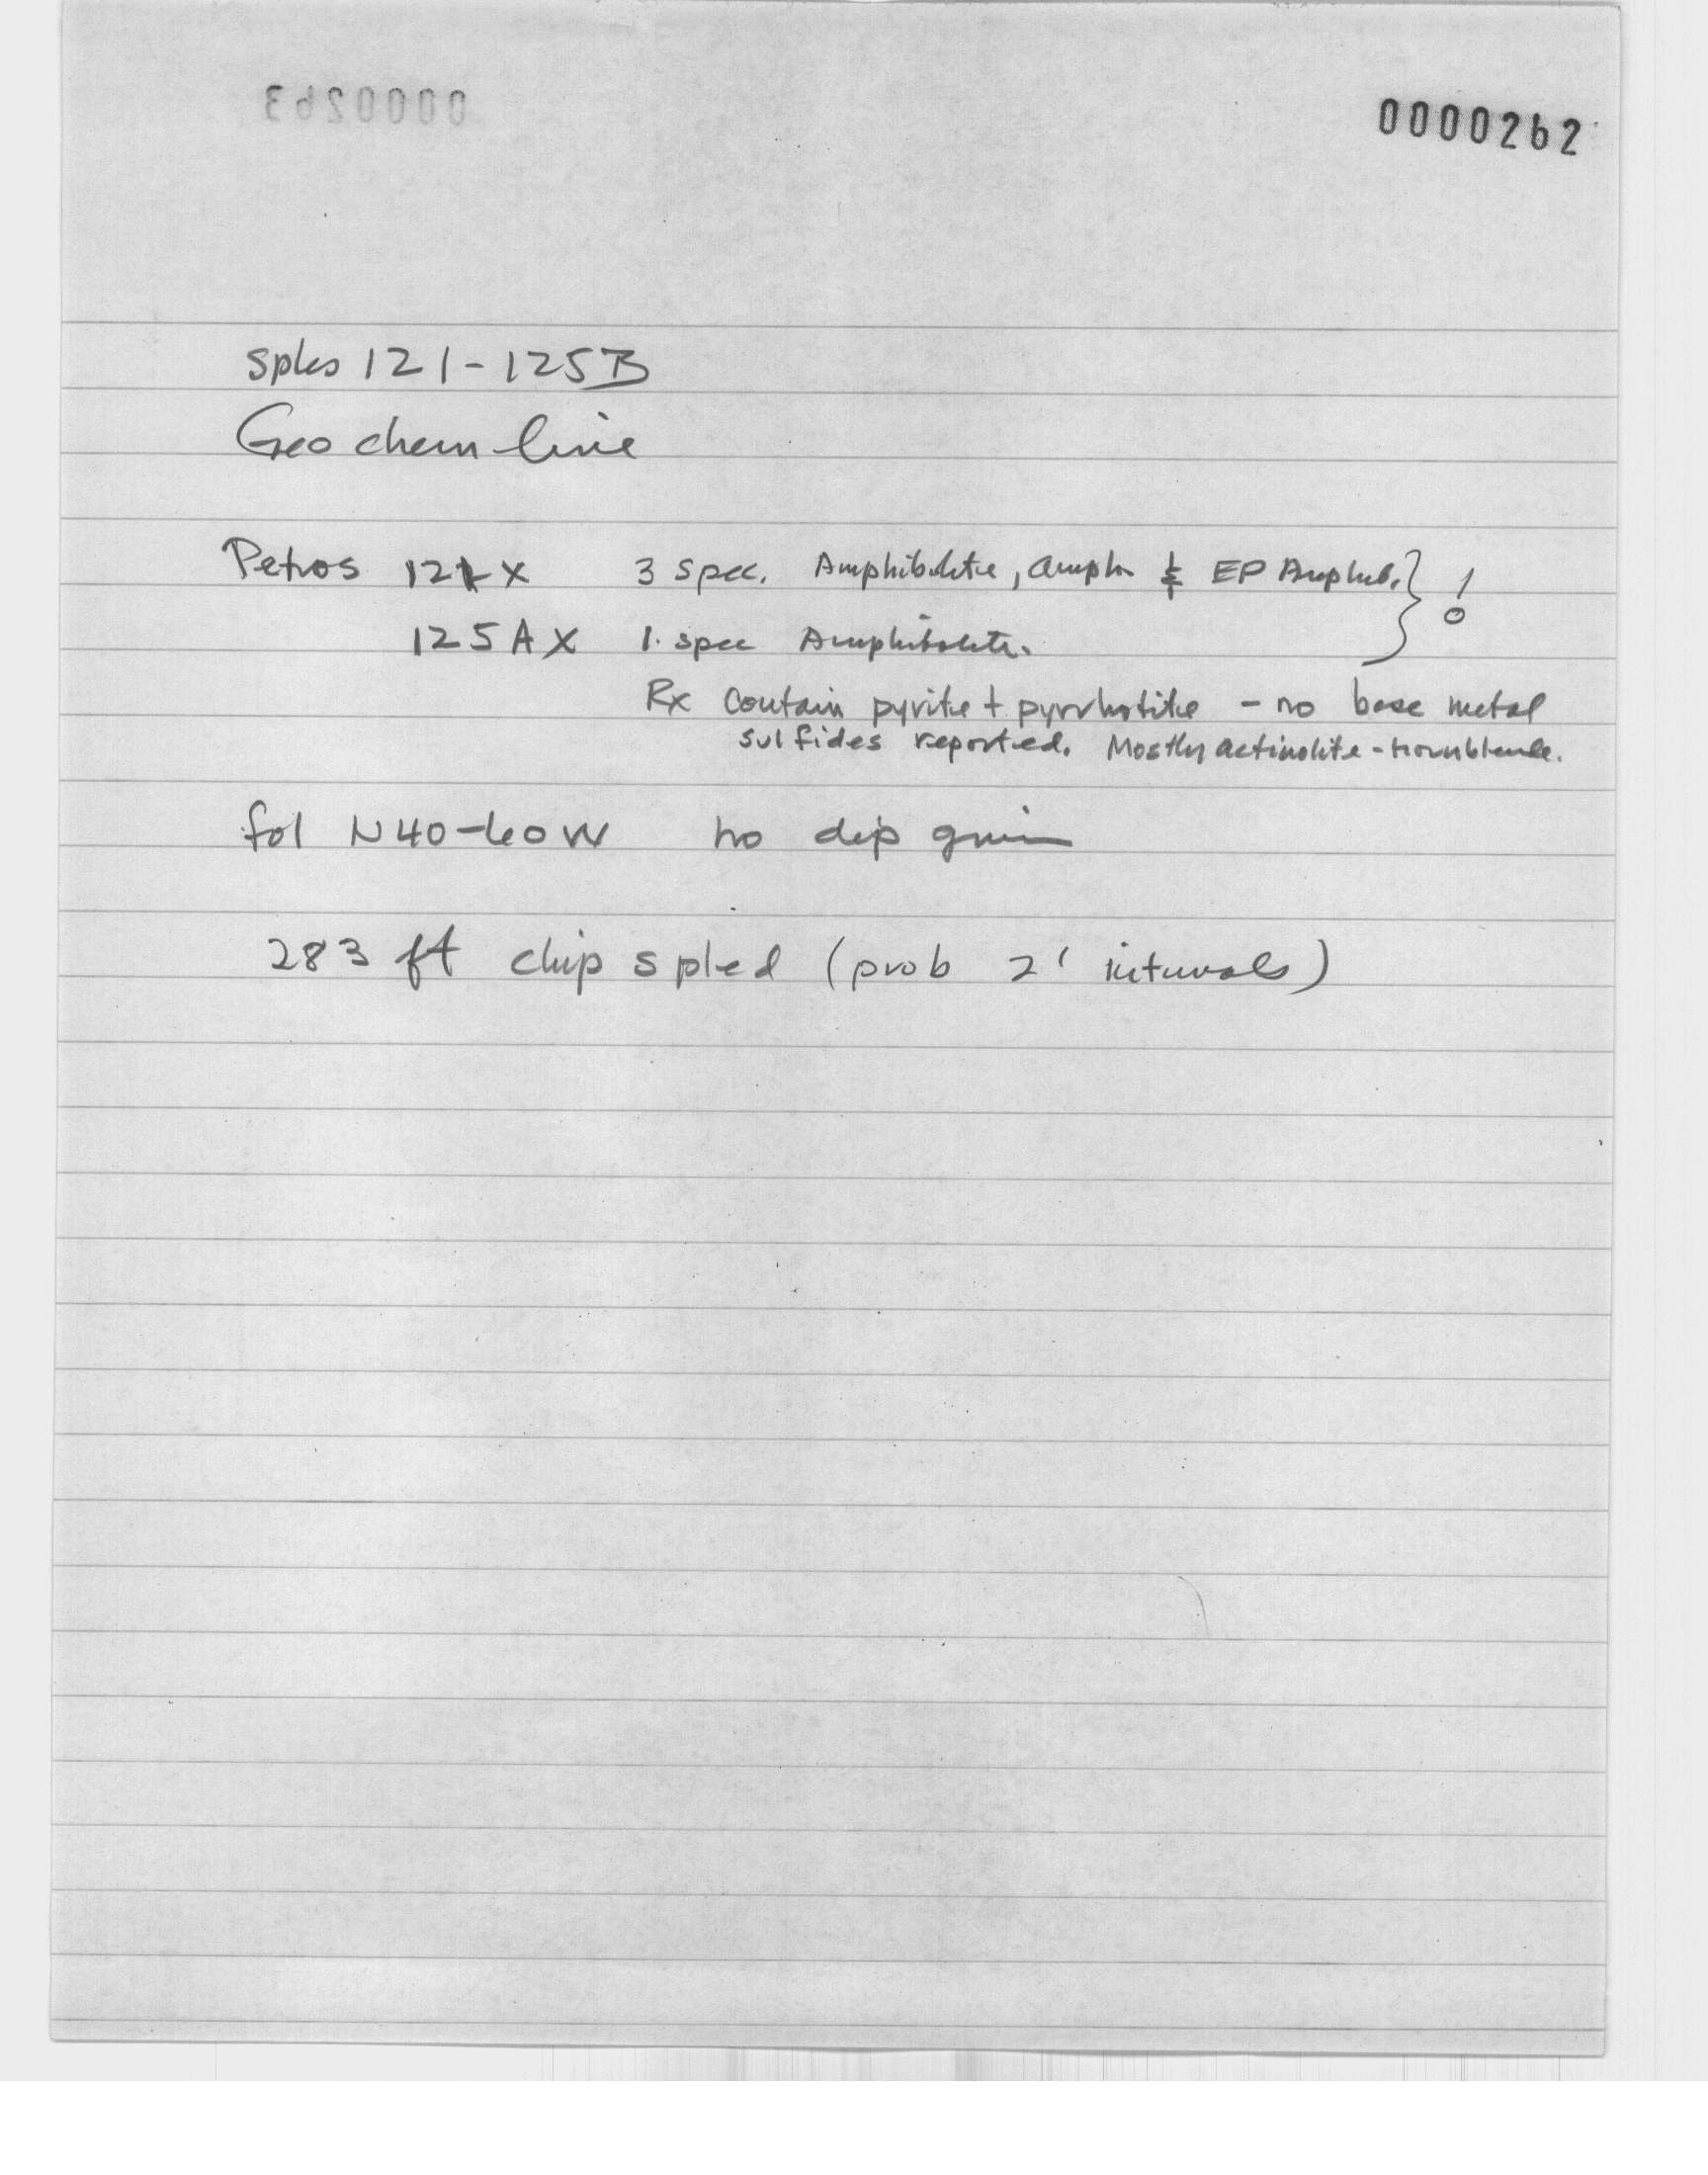 0000263
0000262
Sples 121-125B
Geo chem line
Petros 121X 3 spec. Amphibolite, amph & EP Amphib. } !
125AX 1 spec Amphibolite.
Rx contain pyrite + pyrrhotite - no base metal
sulfides reported. Mostly actinolite-hornblende.
fol N40-60W no dip given
283 ft chip spled (prob 2' intervals)